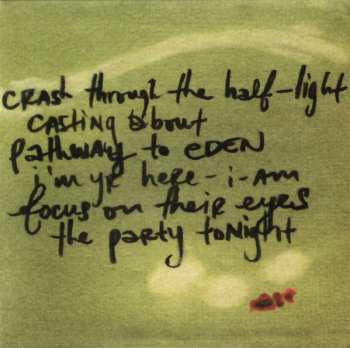 CRASH through the half-light
CASTING about
pathway to EDEN
i'm yr here-i-am
focus on their eyes
the party toNight